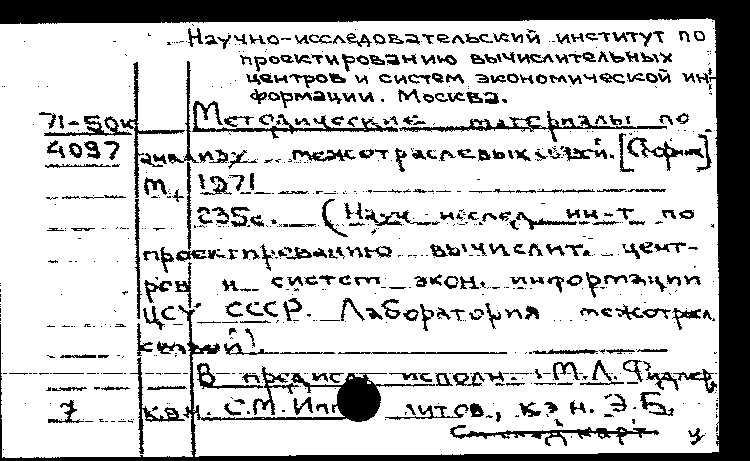 Научно-исследовательский институт по
проектированию вычислительных
центров и систем экономической ин-
формации. Москва.
71-50к Методические материалы по
4097 анализу межотраслевых связей. [Сборник]
М., 1971
235с. (Науч. исслед. ин-т по
проектированию вычислит. цент-
ров и систем экон. информации
ЦСУ СССР. Лаборатория межотрасл.
связей).
В предисл. исполн.: М.Л. Фидлер,
7 к.э.н. С.М. , к.э.н. Э.Б.
См след карт. у